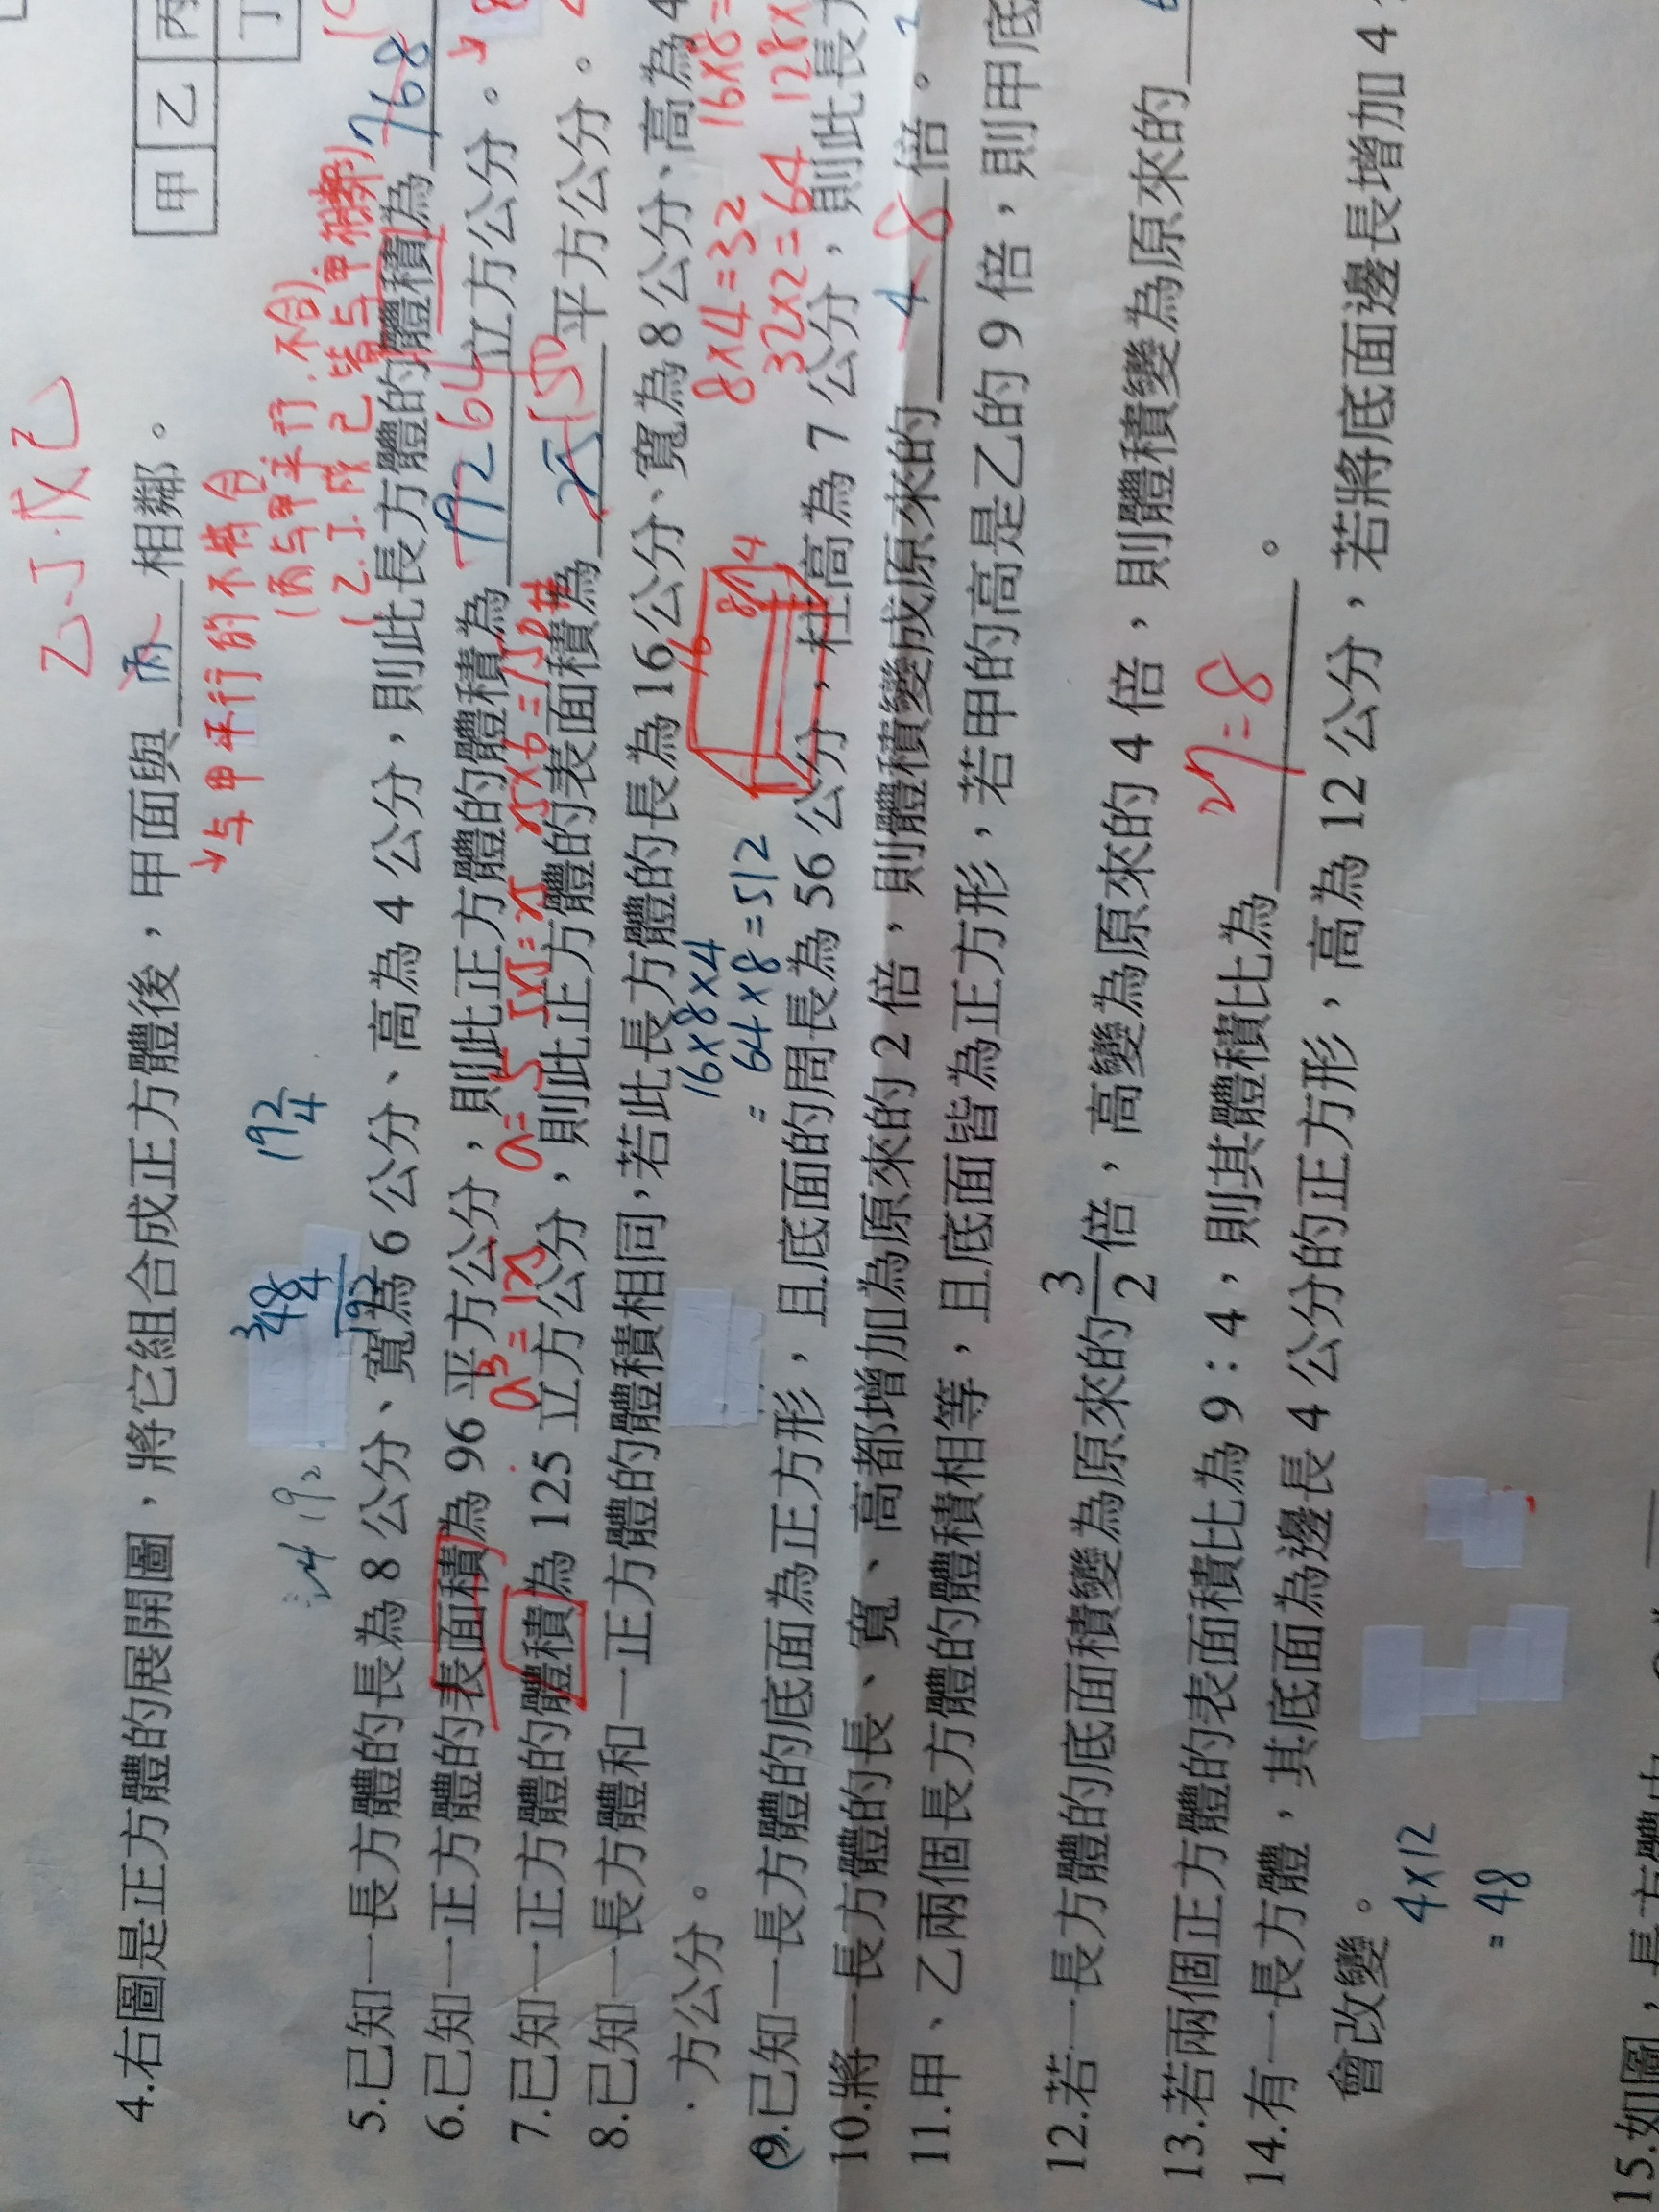 乙、丁、戊、己
甲 乙 丙
丁
4.右圖是正方體的展開圖，將它組合成正方體後，甲面與 丙 相鄰。
↘与甲平行的不符合
(丙与甲平行.不合)
(乙.丁.戊.己皆与甲相鄰)
48
4
192
192
4
192
5.已知一長方體的長為 8 公分、寬為 6 公分、高為 4 公分，則此長方體的體積為 768
6.已知一正方體的表面積為 96 平方公分，則此正方體的體積為 192 64 立方公分。
a³=125 a=5 5x5=25 25x6=150
7.已知一正方體的體積為 125 立方公分，則此正方體的表面積為 25 150 平方公分。
8.已知一長方體和一正方體的體積相同，若此長方體的長為 16 公分、寬為 8 公分、高為 4
方公分。
16×8×4
= 64×8=512
16 8 4
8×4=32 16×8=
32×2=64 128×
9.已知一長方體的底面為正方形，且底面的周長為 56 公分，柱高為 7 公分，則此長方
10.將一長方體的長、寬、高都增加為原來的 2 倍，則體積變成原來的 4 8 倍。
11.甲、乙兩個長方體的體積相等，且底面皆為正方形，若甲的高是乙的 9 倍，則甲底
12.若一長方體的底面積變為原來的 3/2 倍，高變為原來的 4 倍，則體積變為原來的 6
13.若兩個正方體的表面積比為 9：4，則其體積比為 27=8 。
14.有一長方體，其底面為邊長 4 公分的正方形，高為 12 公分，若將底面邊長增加 4
會改變。
4×12
=48
15.如圖，長方體